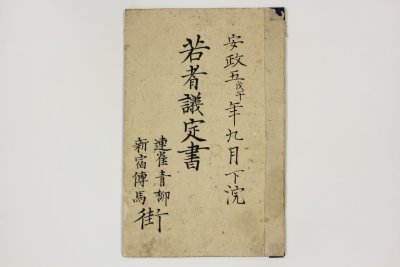 安政五戊午年九月下浣
若者議定書
連雀青柳
新宿傳馬
街